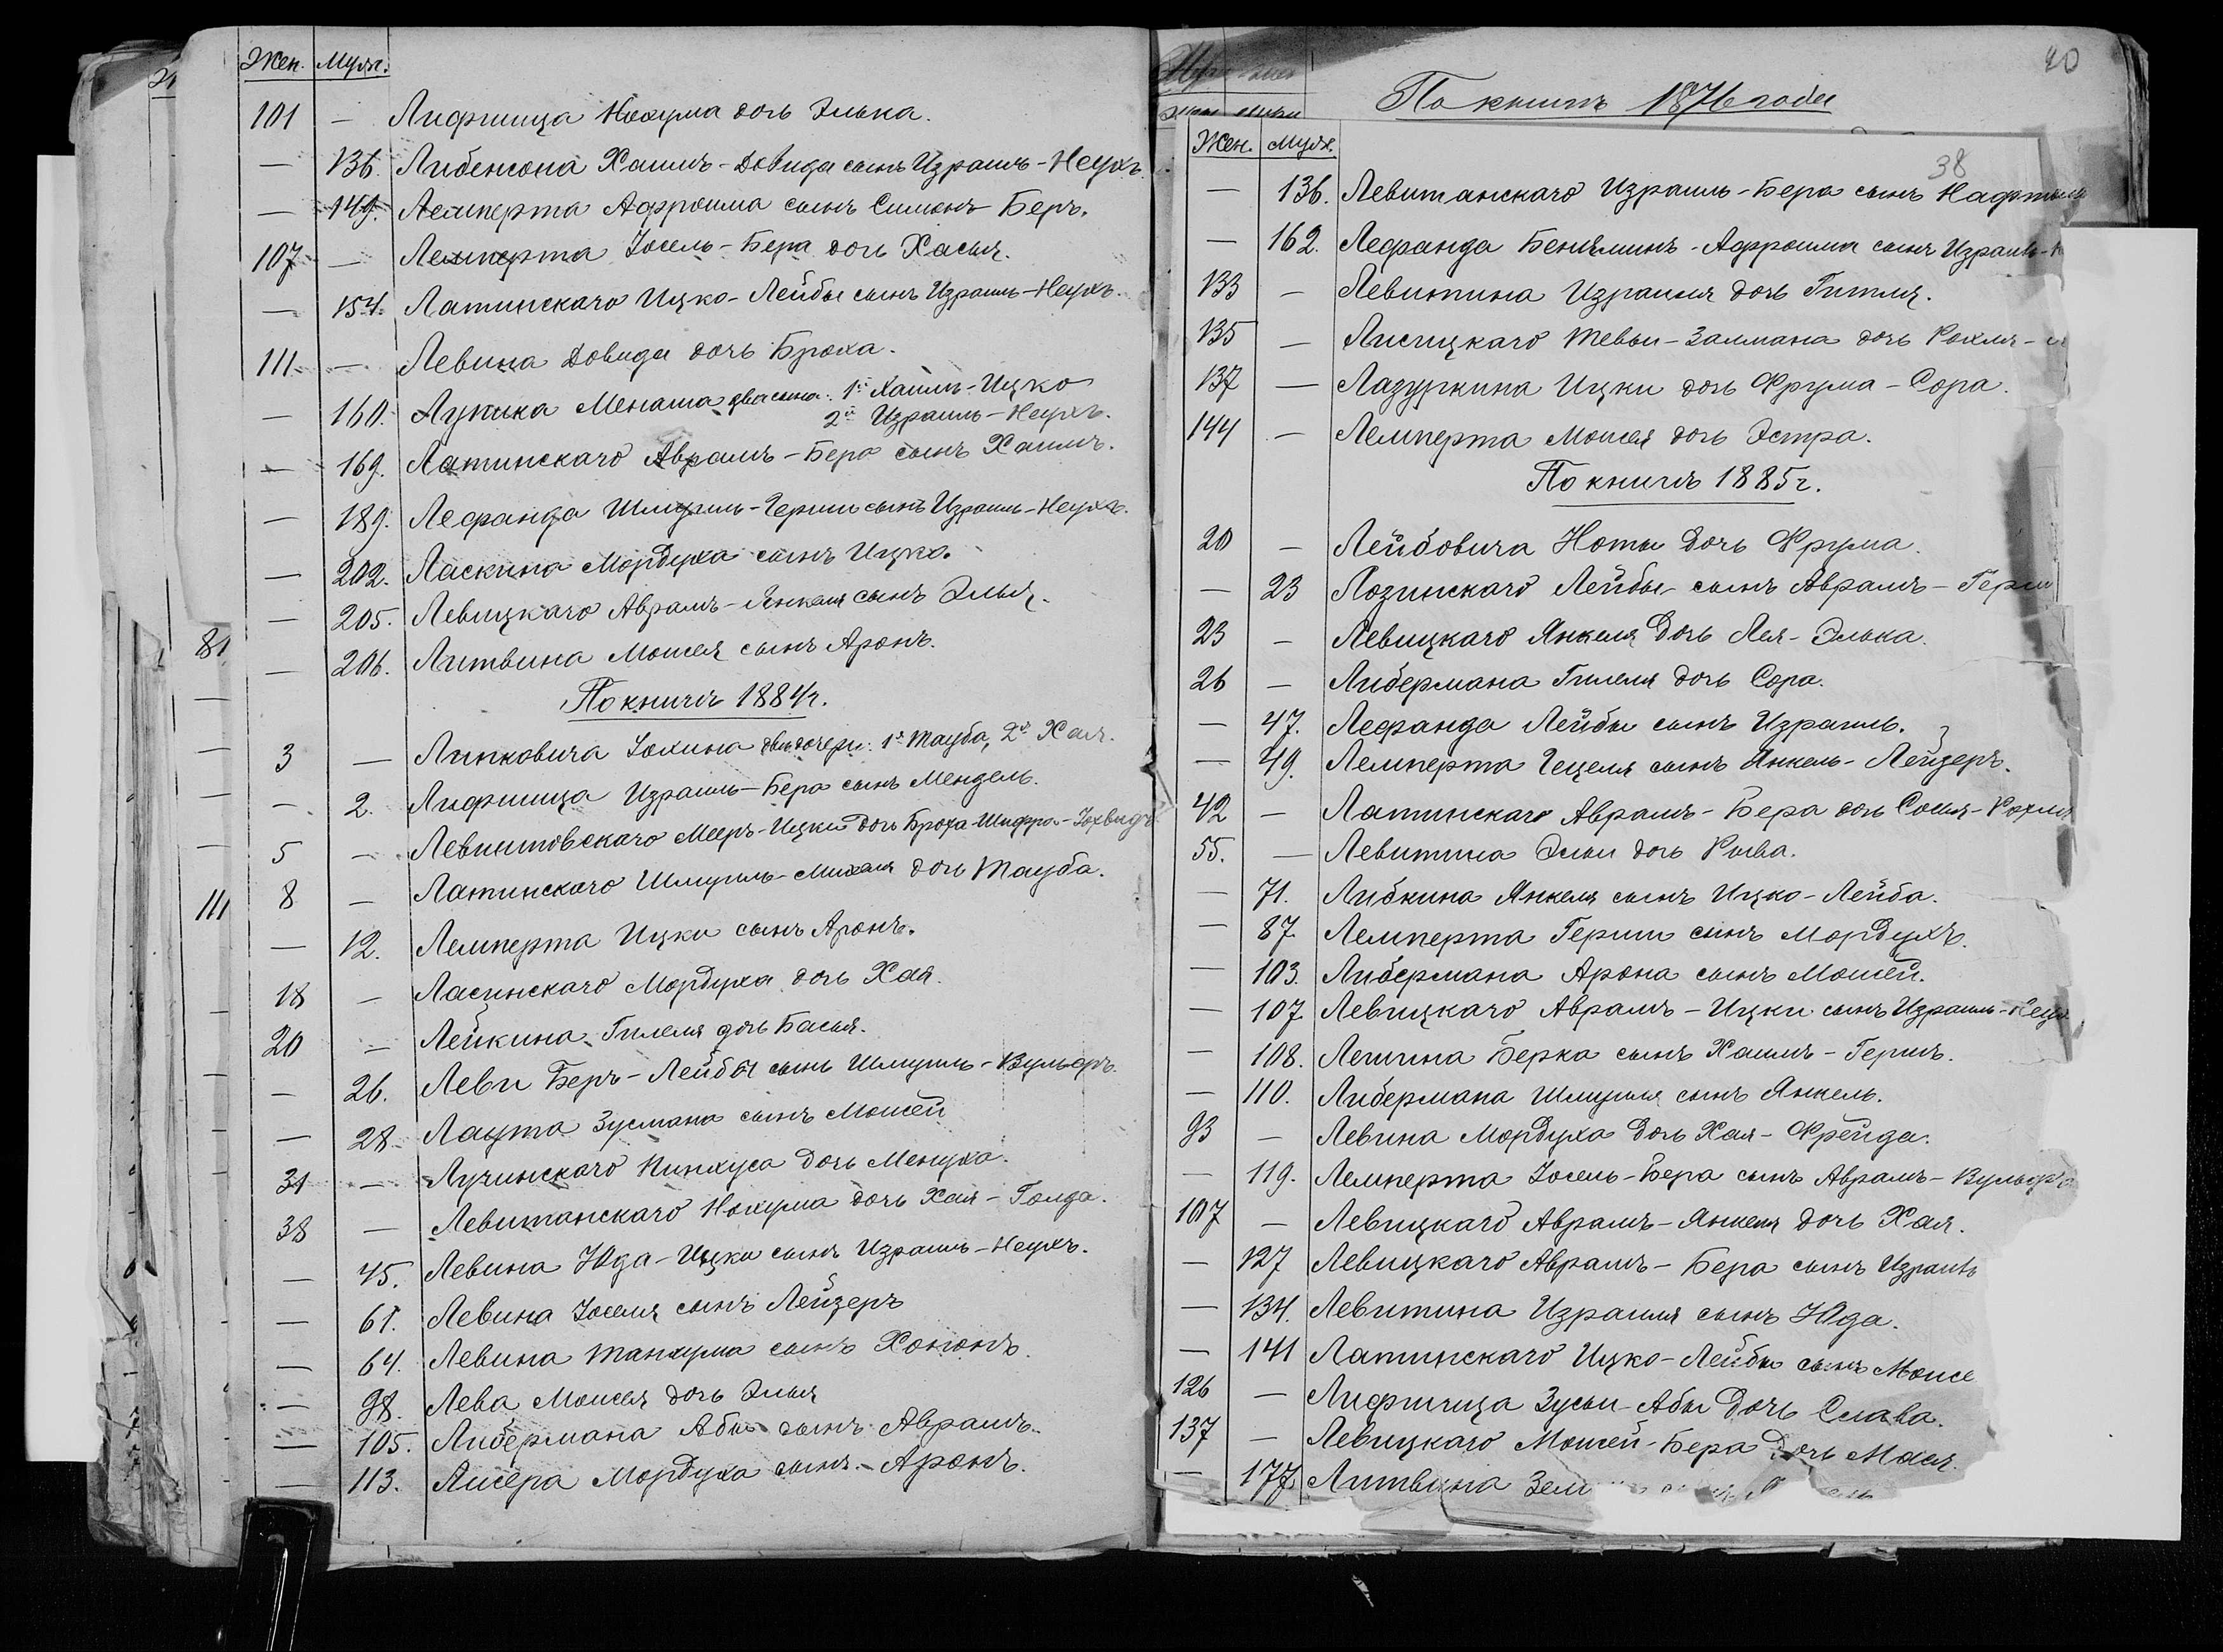 Жен. Муж.
101 — Лифшица Нохума дочь Элька.
— 136. Либенсона Хаимъ-Довида сынъ Израиль-Неухъ.
— 149. Лемперта Афроима сынъ Симонъ-Беръ.
107 — Лемперта Іосель-Бера дочь Хасья.
— 154. Латинскаго Ицко-Лейбы сынъ Израиль-Неухъ.
111 — Левина Довида дочь Броха.
— 160. Лупика Менаша два сына: 1й Хаимъ-Ицко
2й Израиль-Неухъ.
— 169. Латинскаго Аврамъ-Бера сынъ Хаимъ.
— 189. Лефанда Шмуиль-Герши сынъ Израиль-Неухъ.
— 202. Ласкина Мордуха сынъ Ицко.
— 205. Левицкаго Аврамъ-Янкеля сынъ Элья.
— 206. Литвина Мошея сынъ Аронъ.
По книгѣ 1884г.
3 — Липковича Іохина двѣ дочери: 1я Тауба, 2я Хая.
— 2. Лифшица Израиль-Бера сынъ Мендель.
5 — Левиштовскаго Мееръ-Ицки дочь Броха-Шифра-Іохвидъ
8 — Латинскаго Шмуиль-Михаля дочь Тауба.
— 12. Лемперта Ицки сынъ Аронъ.
18 — Ласинскаго Мордуха дочь Хая.
20 — Лейкина Гилеля дочь Басья.
— 26. Леви Беръ-Лейбы сынъ Шмуиль-Вульфъ.
— 28 Лаута Зусмана сынъ Мошей
31 — Лучинскаго Пинхуса дочь Менуха.
38 — Левитанскаго Нохума дочь Хая-Голда.
— 45. Левина Юда-Ицки сынъ Израиль-Неухъ.
— 61. Левина Іоселя сынъ Лейзеръ
— 64. Левина Танхума сынъ Хононъ.
— 98. Лева Мошея дочь Элья
— 105. Либермана Абы сынъ Аврамъ.
— 113. Лисера Мордуха сынъ Аронъ.
81
111
40
По книгѣ 1876 года
Жен. Муж.
38
— 136. Левитанскаго Израиль-Бера сынъ
— 162. Лефанда Беньяминъ-Афроима сынъ Израиль-
133 — Левитина Израиля дочь Гитля.
135 — Лисицкаго Тевьи-Залмана дочь Рохля-
137 — Лазуркина Ицки дочь Фрума-Сора.
144 — Лемперта Мошея дочь Эстра.
По книгѣ 1885г.
20 — Лейбовича Ноты дочь Фрума.
— 23 Лозинскаго Лейбы сынъ Аврамъ-Герш
23 — Левицкаго Янкеля дочь Лея-Элька.
26 — Либермана Гилеля дочь Сора.
— 47. Лефанда Лейбы сынъ Израиль.
— 49. Лемперта Гецеля сынъ Янкель-Лейзеръ.
42 — Латинскаго Аврамъ-Бера дочь Сошя-Рохля
55. — Левитина Эльи дочь Рыва.
— 71. Либкина Янкеля сынъ Ицко-Лейба.
— 87. Лемперта Герши сынъ Мордухъ.
— 103. Либермана Арона сынъ Мошей.
— 107 Левицкаго Аврамъ-Ицки сынъ Израиль-Неух
— 108. Лешина Берка сынъ Хаимъ-Гершъ.
— 110. Либермана Шмуиля сынъ Янкель.
93 — Левина Мордуха дочь Хая-Фрейда.
— 119. Лемперта Іосель-Бера сынъ Аврамъ-Вульфъ
107 — Левицкаго Аврамъ-Янкеля дочь Хая.
— 127 Левицкаго Аврамъ-Бера сынъ Израиль
— 134. Левитина Израиля сынъ Юда.
— 141 Латинскаго Ицко-Лейбы сынъ Моисе
126 — Лифшица Зусьи-Абы дочь Слава.
137 — Левицкаго Мошей-Бера дочь Maся.
— 177. Литвина Зели